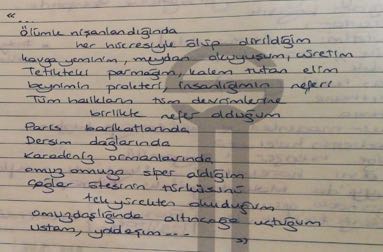 “...
Ölümle nişanlandığında
her hücresiyle ölüp dirildiğim
kavga yeminim, meydan okuyuşum, cüretim
Tetikteki parmağım, kalem tutan elim
beynimin proleteri, insanlığımın neferi
Tüm halkların tüm devrimlerine
birlikte nefer olduğum
Paris barikatlarında
Dersim dağlarında
Karadeniz ormanlarında
omuz omuza siper aldığım
çağlar ötesinin türküsünü
tek yürekten okuduğum
omuzdaşlığında altınçağa uçtuğum
ustam, yoldaşım...
”